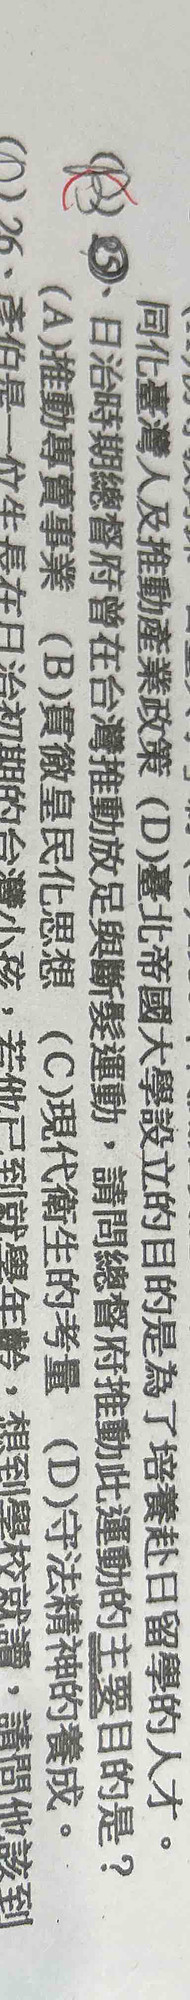 同化臺灣人及推動產業政策 (D)臺北帝國大學設立的目的是為了培養赴日留學的人才。
25、日治時期總督府曾在台灣推動放足與斷髮運動，請問總督府推動此運動的主要目的是？
(A)推動專賣事業 (B)貫徹皇民化思想 (C)現代衛生的考量 (D)守法精神的養成。
26、彥伯是一位生長在日治初期的台灣小孩，若他已到就學年齡，想到學校就讀，請問他該到